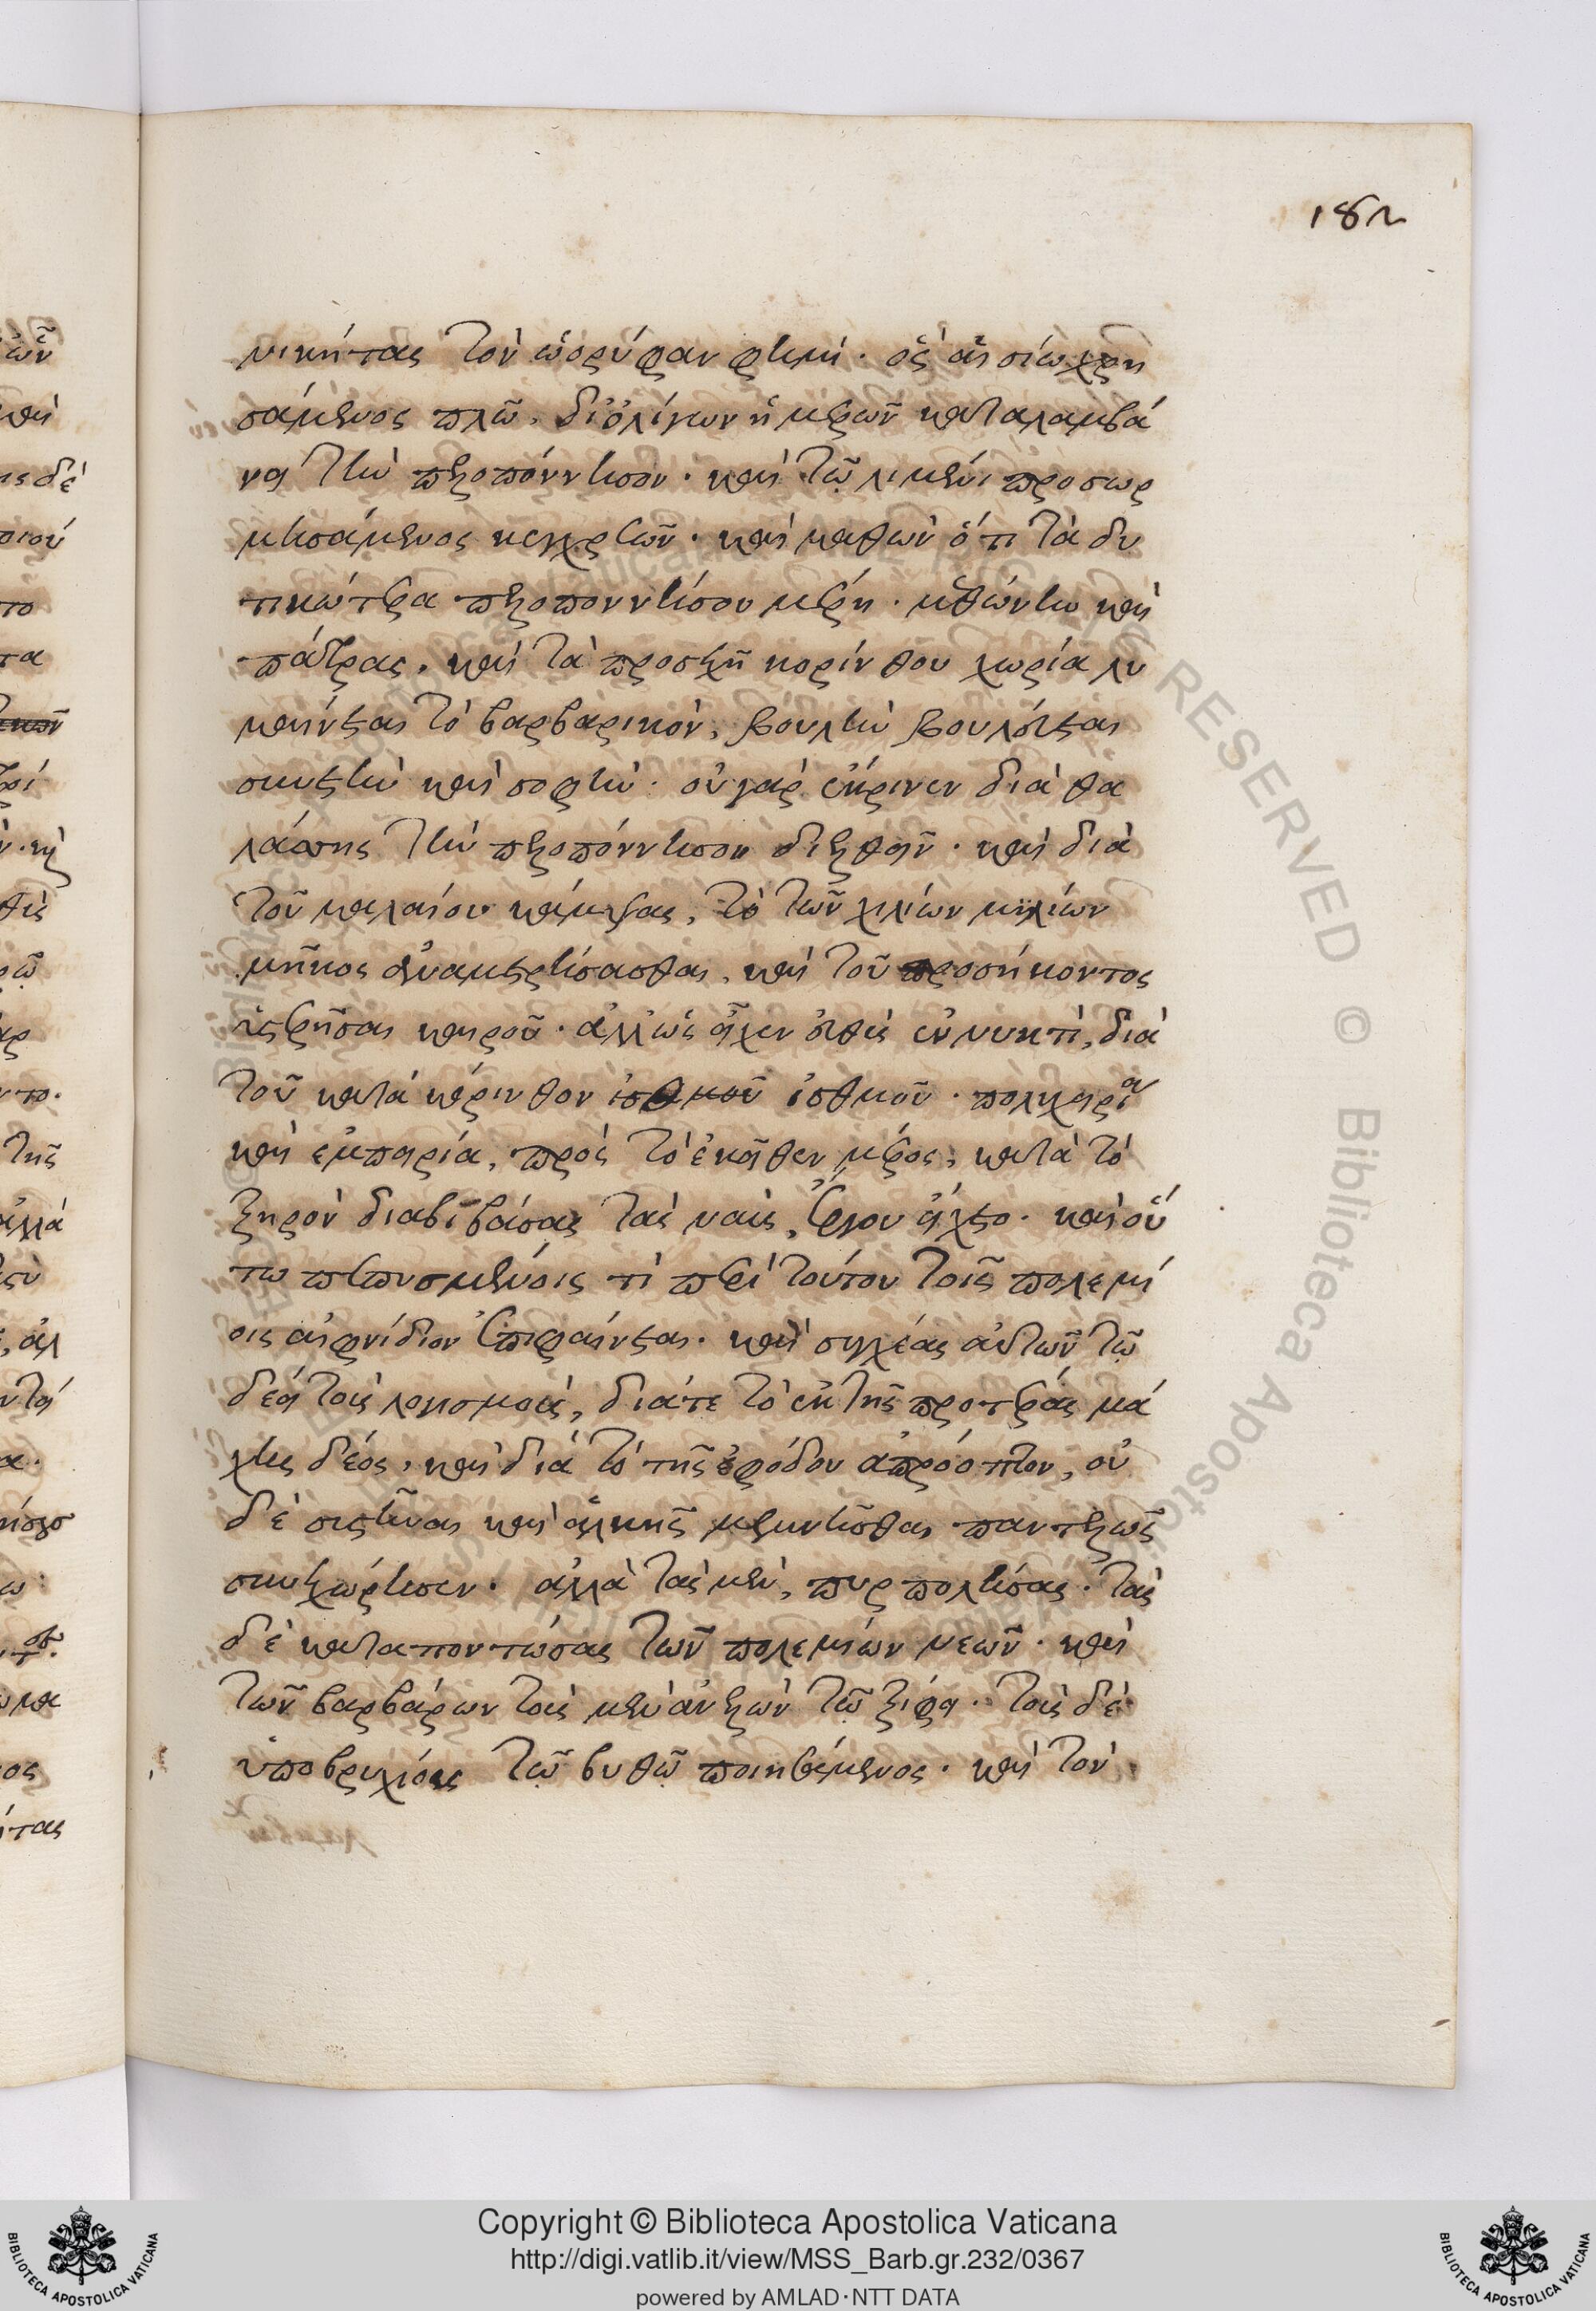 182
νικήτας τὸν ὠορύφαν φημί· ὃς αἰσίω χρη
σάμενος πλῶ, δι ὀλίγων ἡμερῶν καταλαμβά
νει τὴν πελοπόννησον· καὶ τῷ λιμένι προσωρ
μησάμενος κεγχρεῶν· καὶ μαθὼν ὅτι τὰ δυ
τικώτερα πελοποννήσου μέρη· μεθώνην καὶ
πάτρας, καὶ τὰ προσεχῆ κορίνθου χωρία λυ
μαίνεται τὸ βαρβαρικόν, βουλὴν βουλεύεται
συνετὴν καὶ σοφήν· οὐ γὰρ ἔκρινεν διὰ θα
λάσσης τὴν πελοπόννησον διελθεῖν· καὶ διὰ
τοῦ μαλαίου κάμψας, τὸ τῶν χιλίων μιλίων
μῆκος ἀναμετρήσασθαι, καὶ τοῦ προσήκοντος
ὑστερῆσαι καιροῦ· ἀλλ ὡς εἶχεν εὐθὺς ἐν νυκτὶ, διὰ
τοῦ κατὰ κόρινθον ἰσθμοῦ ἰσθμοῦ· πολυχειρία
καὶ ἐμπειρία, πρὸς τὸ ἐκεῖθεν μέρος, κατὰ τὸ
ξηρὸν διαβιβάσας τὰς ναῦς, ἔργου εἴχετο· καὶ οὔ
πω πεπυσμένοις τὶ περὶ τούτου τοῖς πολεμί
οις αἰφνίδιον ἐπιφαίνεται· καὶ συγχέας αὐτῶν τῷ
δέει τοὺς λογισμοὺς, διά τε τὸ ἐκ τῆς προτέρας μά
χης δέος, καὶ διὰ τὸ τῆς ἐφόδου ἀπρόοπτον, οὐ
δὲ συστῆναι καὶ ἀλκῆς μεμνῆσθαι παντελῶς
συνεχώρησεν· ἀλλὰ τὰς μὲν, πυρπολήσας· τὰς
δὲ καταποντώσας τῶν πολεμίων νεῶν· καὶ
τῶν βαρβάρων τοὺς μὲν ἀνελὼν τῷ ξίφει· τοὺς δὲ
ὑποβρυχίους τῷ βυθῷ ποιησάμενος· καὶ τὸν
Copyright © Biblioteca Apostolica Vaticana
http://digi.vatlib.it/view/MSS_Barb.gr.232/0367
powered by AMLAD·NTT DATA